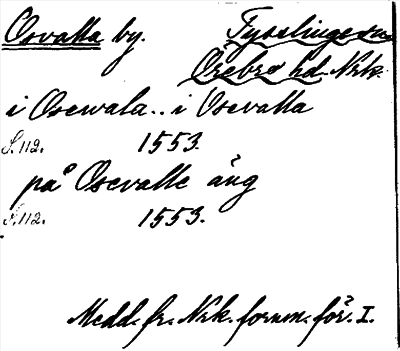 Osvalla by. Tysslinge sn
Örebro hd. Nrk.
i Osewala.. i Osevalla
S. 112. 1553.
på Osevalle äng
S. 112. 1553.
Medd. fr. Nrk. fornm. för. I.